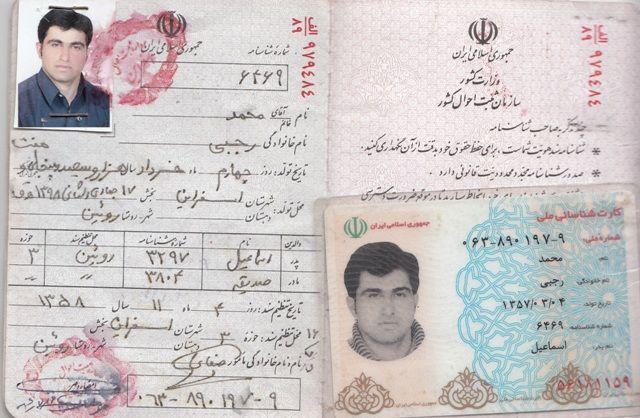 الف/۸۹ ۹۷۹۴۸۴
جمهوری اسلامی ایران
شماره شناسنامه
۶۴۶۹
نام آقای خانم محمد
نام خانوادگی: رجبی
تاریخ تولد: روز چهارم ماه خرداد سال هزار و سیصد و پنجاه و هفت
محل تولد: شهرستان اسفراین بخش
دهستان شهر - روستا روئین
والدین نام شماره شناسنامه محل تنظیم سند حوزه
پدر اسماعیل ۳۲۹۷ روئین ۳
مادر صدیقه ۳۸۰۴
تاریخ تنظیم سند: روز ۴ ماه ۱۱ سال ۱۳۵۸
محل تنظیم سند: حوزه ۳ شهرستان اسفراین بخش
شهر - روستا روئین
نام و نام خانوادگی مأمور
۰۶۳-۸۹۰۱۹۷-۹
الف/۸۹ ۹۷۹۴۸۴
جمهوری اسلامی ایران
وزارت کشور
سازمان ثبت احوال کشور
صاحب شناسنامه
* شناسنامه سند هویت شماست، برای حفظ حقوق خود به دقت از آن نگهداری کنید.
* صدور شناسنامه مجدد محدودیت قانونی دارد
کارت شناسائی ملی
جمهوری اسلامی ایران
شماره ملی: ۰۶۳-۸۹۰۱۹۷-۹
نام: محمد
نام خانوادگی: رجبی
تاریخ تولد: ۱۳۵۷/۰۳/۰۴
شماره شناسنامه: ۶۴۶۹
نام پدر: اسماعیل